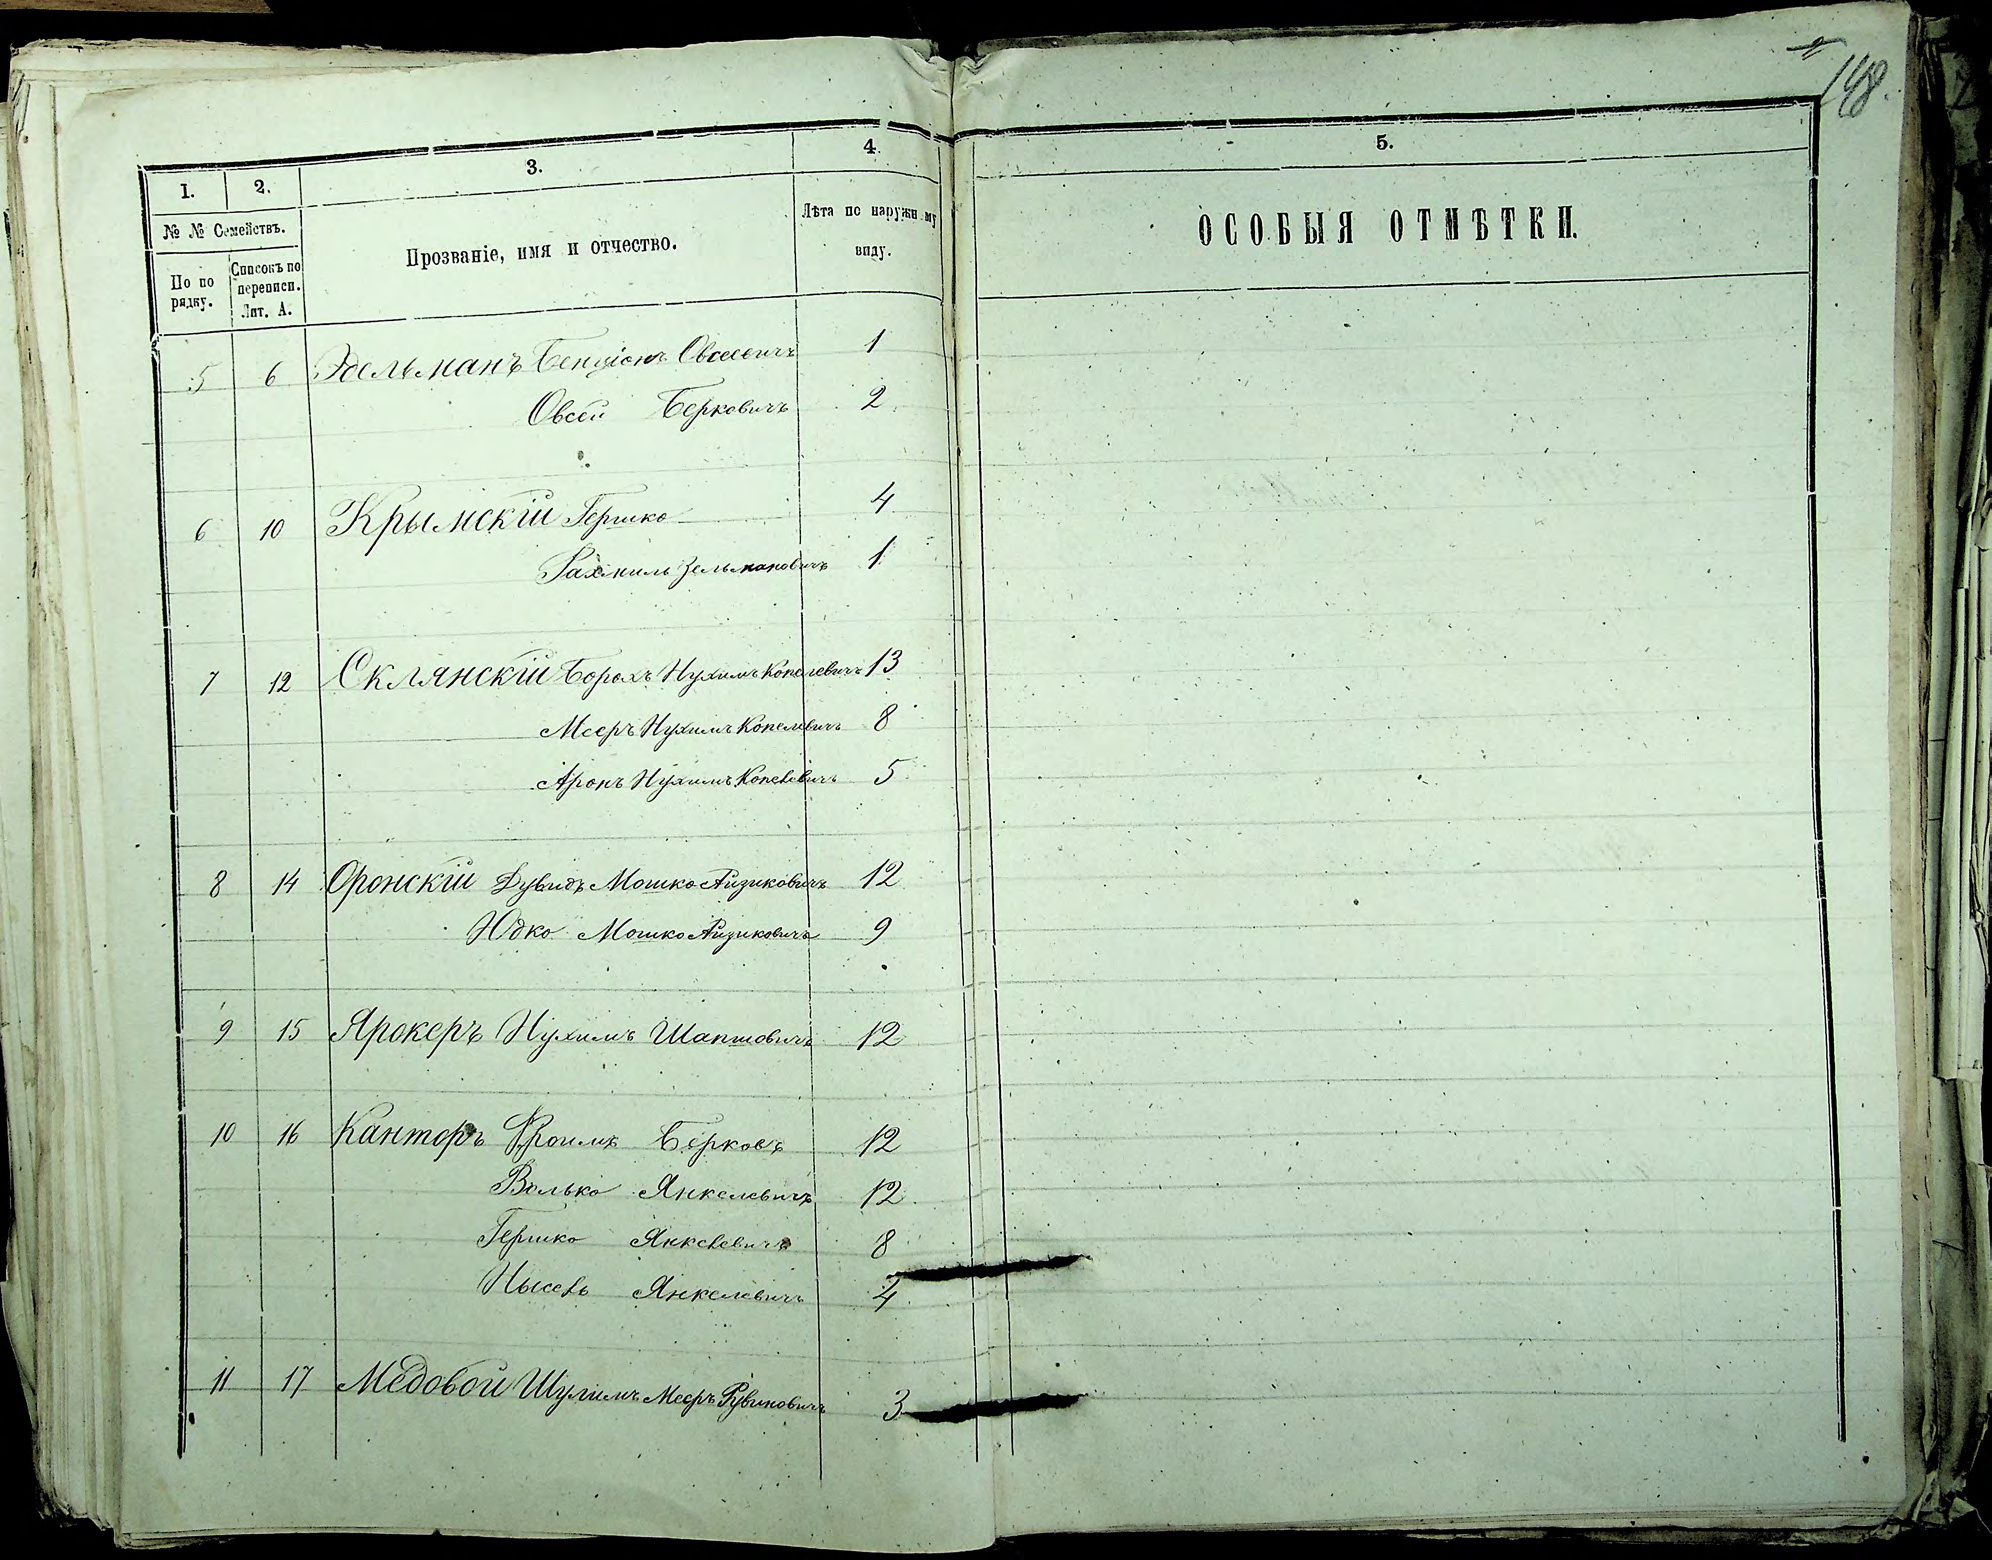 148.
1. 2. 3. 4 5.
№ № Семействъ.
По по рядку.
Списокъ по переписи. Лит. А.
Прозваніе, имя и отчество.
Лѣта по наружному виду.
ОСОБЫЯ ОТМѢТКИ.
5 6 Эдельманъ Бенціонъ Овсеевичъ 1
Овсей Берковичъ 2
6 10 Крымскій Гершко 4
Рахмиль Зельмановичъ 1
7 12 Склянскій Борохъ Нухимъ Копелевичъ 13
Мееръ Нухимъ Копелевичъ 8
Аронъ Нухимъ Копелевичъ 5
8 14 Оронскій Дувидъ Мошко Айзиковичъ 12
Юдко Мошко Айзиковичъ 9
9 15 Ярокеръ Нухимъ Шапшовичъ 12
10 16 Канторъ Фроимъ Берковъ 12
Волько Янкелевичъ 12
Гершко Янкелевичъ 8
Нысель Янкелевичъ 4
11 17 Медовой Шулимъ Мееръ Рувиновичъ 3